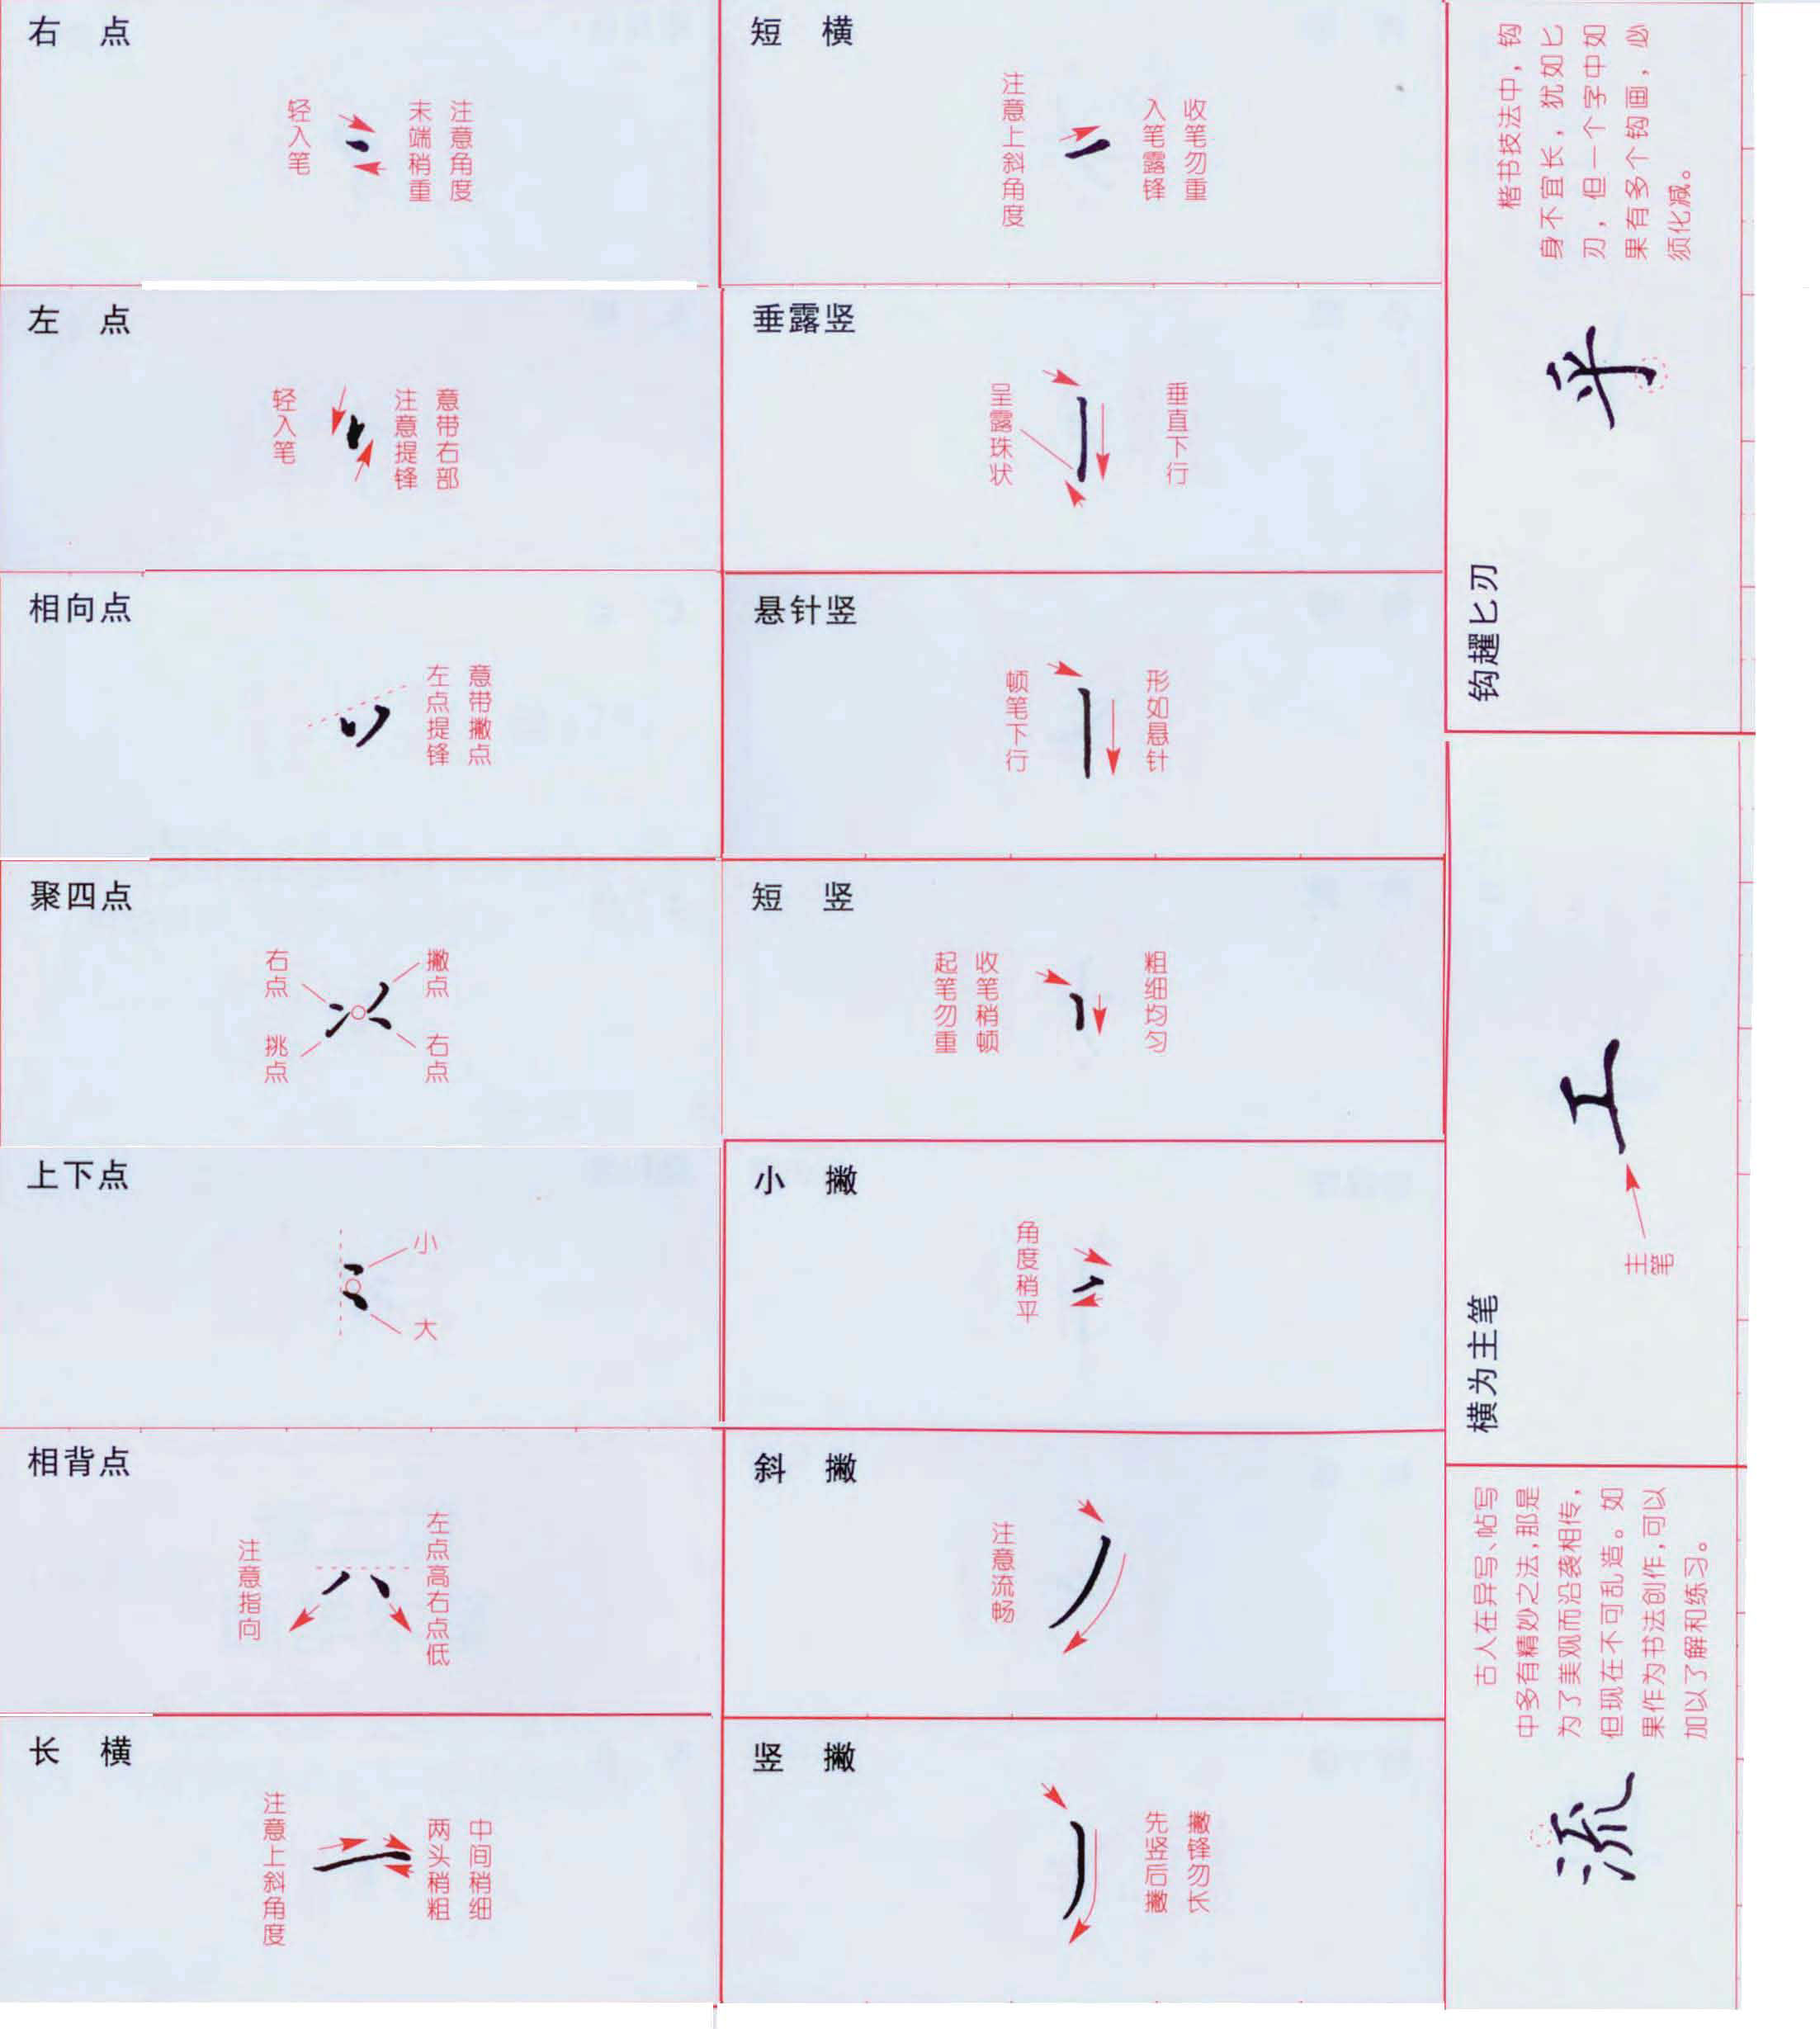 右 点
轻入笔
末端稍重
注意角度
左 点
轻入笔
注意提锋
意带右部
相向点
左点提锋
意带撇点
聚四点
右点
撇点
挑点
右点
上下点
小
大
相背点
注意指向
左点高右点低
长 横
注意上斜角度
两头稍粗
中间稍细
短 横
注意上斜角度
入笔露锋
收笔勿重
垂露竖
呈露珠状
垂直下行
悬针竖
顿笔下行
形如悬针
短 竖
起笔勿重
收笔稍顿
粗细均匀
小 撇
角度稍平
斜 撇
注意流畅
竖 撇
先竖后撇
撇锋勿长
钩趯匕刃
乎
楷书技法中，钩
身不宜长，犹如匕
刃，但一个字中如
果有多个钩画，必
须化减。
横为主笔
工
主笔
流
古人在异写、帖写
中多有精妙之法，那是
为了美观而沿袭相传，
但现在不可乱造。如
果作为书法创作，可以
加以了解和练习。